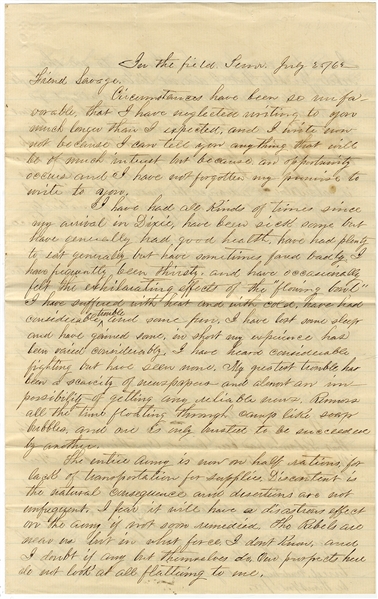 In the field, Tenn. July 25/62
Friend Savage.
Circumstances have been so unfa-
vorable, that I have neglected writing to you
much longer than I expected, and I write now
not because I can tell you anything that will
be of much intrest but because an opportunity
occurs and I have not forgotten my promise to
write to you.
I have had all kinds of times since
my arrival in Dixie, have been sick some but
have generally had good health, have had plenty
to eat generally but have sometimes fared badly. I
have frequently been thirsty. and have occasionally
felt the exhilarating effects of the "flowing bowl"
I have suffered with heat and with cold, have had
considerable trouble and some fun. I have lost some sleep
and have gained some, in short my exprience has
been varied considerably. I have heard considerable
fighting but have seen none. My greatest trouble has
been a scarcity of newspapers and almost an im
possibility of getting any reliable news. Rumors
all the time floating through camp like soap
bubbles, and one is only busted to be succeeded
by another.
The entire army is now on half rations, for
lack of transportation for supplies. Discontent is
the natural consequence and desertions are not
unfrequent. I fear it will have a disastrous effect
on the army if not soon remedied. The Rebels are
near us but in what force I don't know, and
I doubt if any but themselves do. Our prospects here
do not look at all flattering to me.